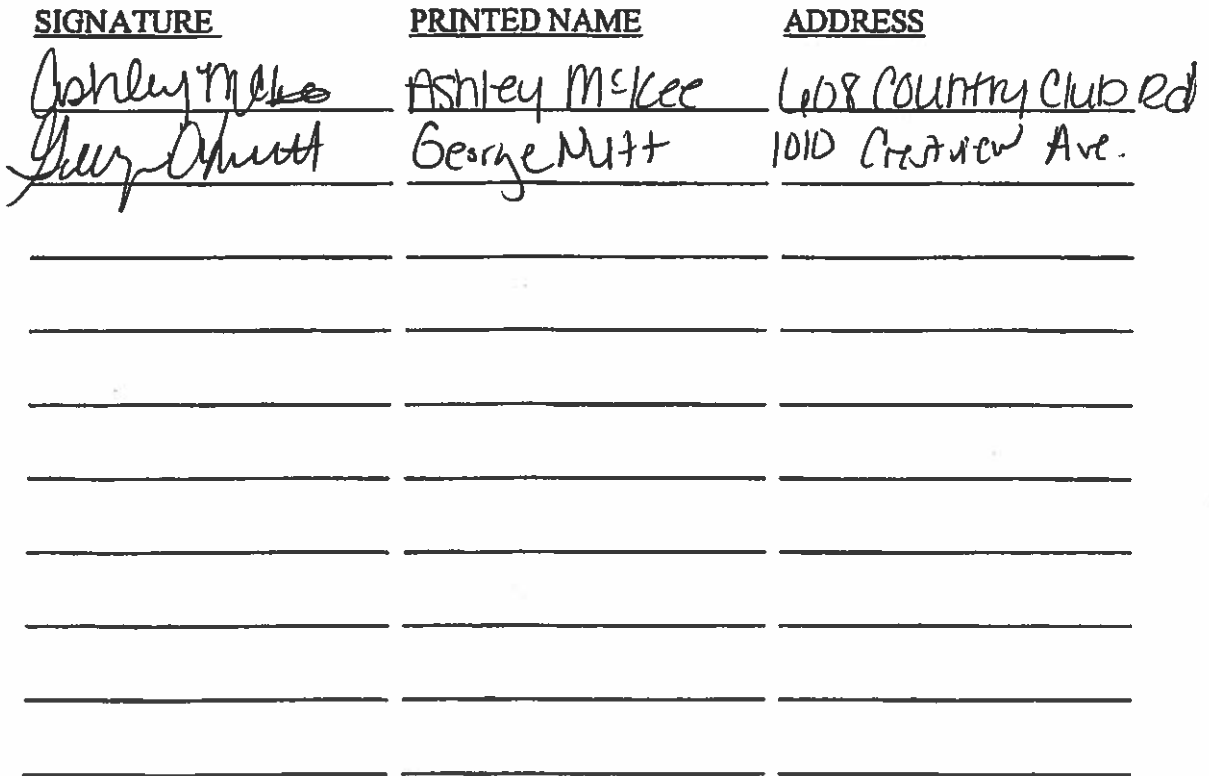 SIGNATURE PRINTED NAME ADDRESS
Ashley McKee Ashley McKee 608 Country Club Rd
George Nutt 1010 Crestview Ave.